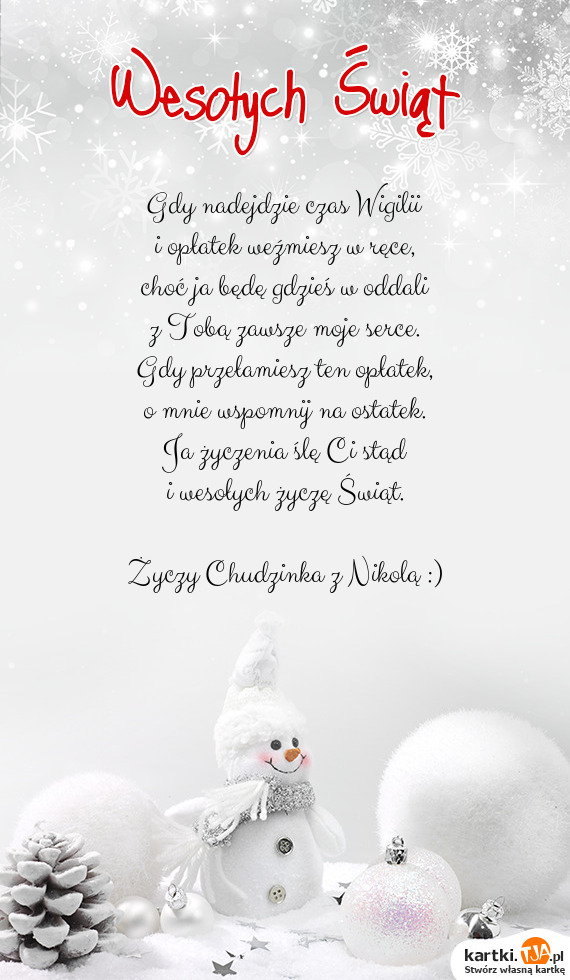 Wesołych Świąt
Gdy nadejdzie czas Wigilii
i opłatek weźmiesz w ręce,
choć ja będę gdzieś w oddali
z Tobą zawsze moje serce.
Gdy przełamiesz ten opłatek,
o mnie wspomnij na ostatek.
Ja życzenia ślę Ci stąd
i wesołych życzę Świąt.
Życzy Chudzinka z Nikolą :)
kartki.TJA.pl
Stwórz własną kartkę